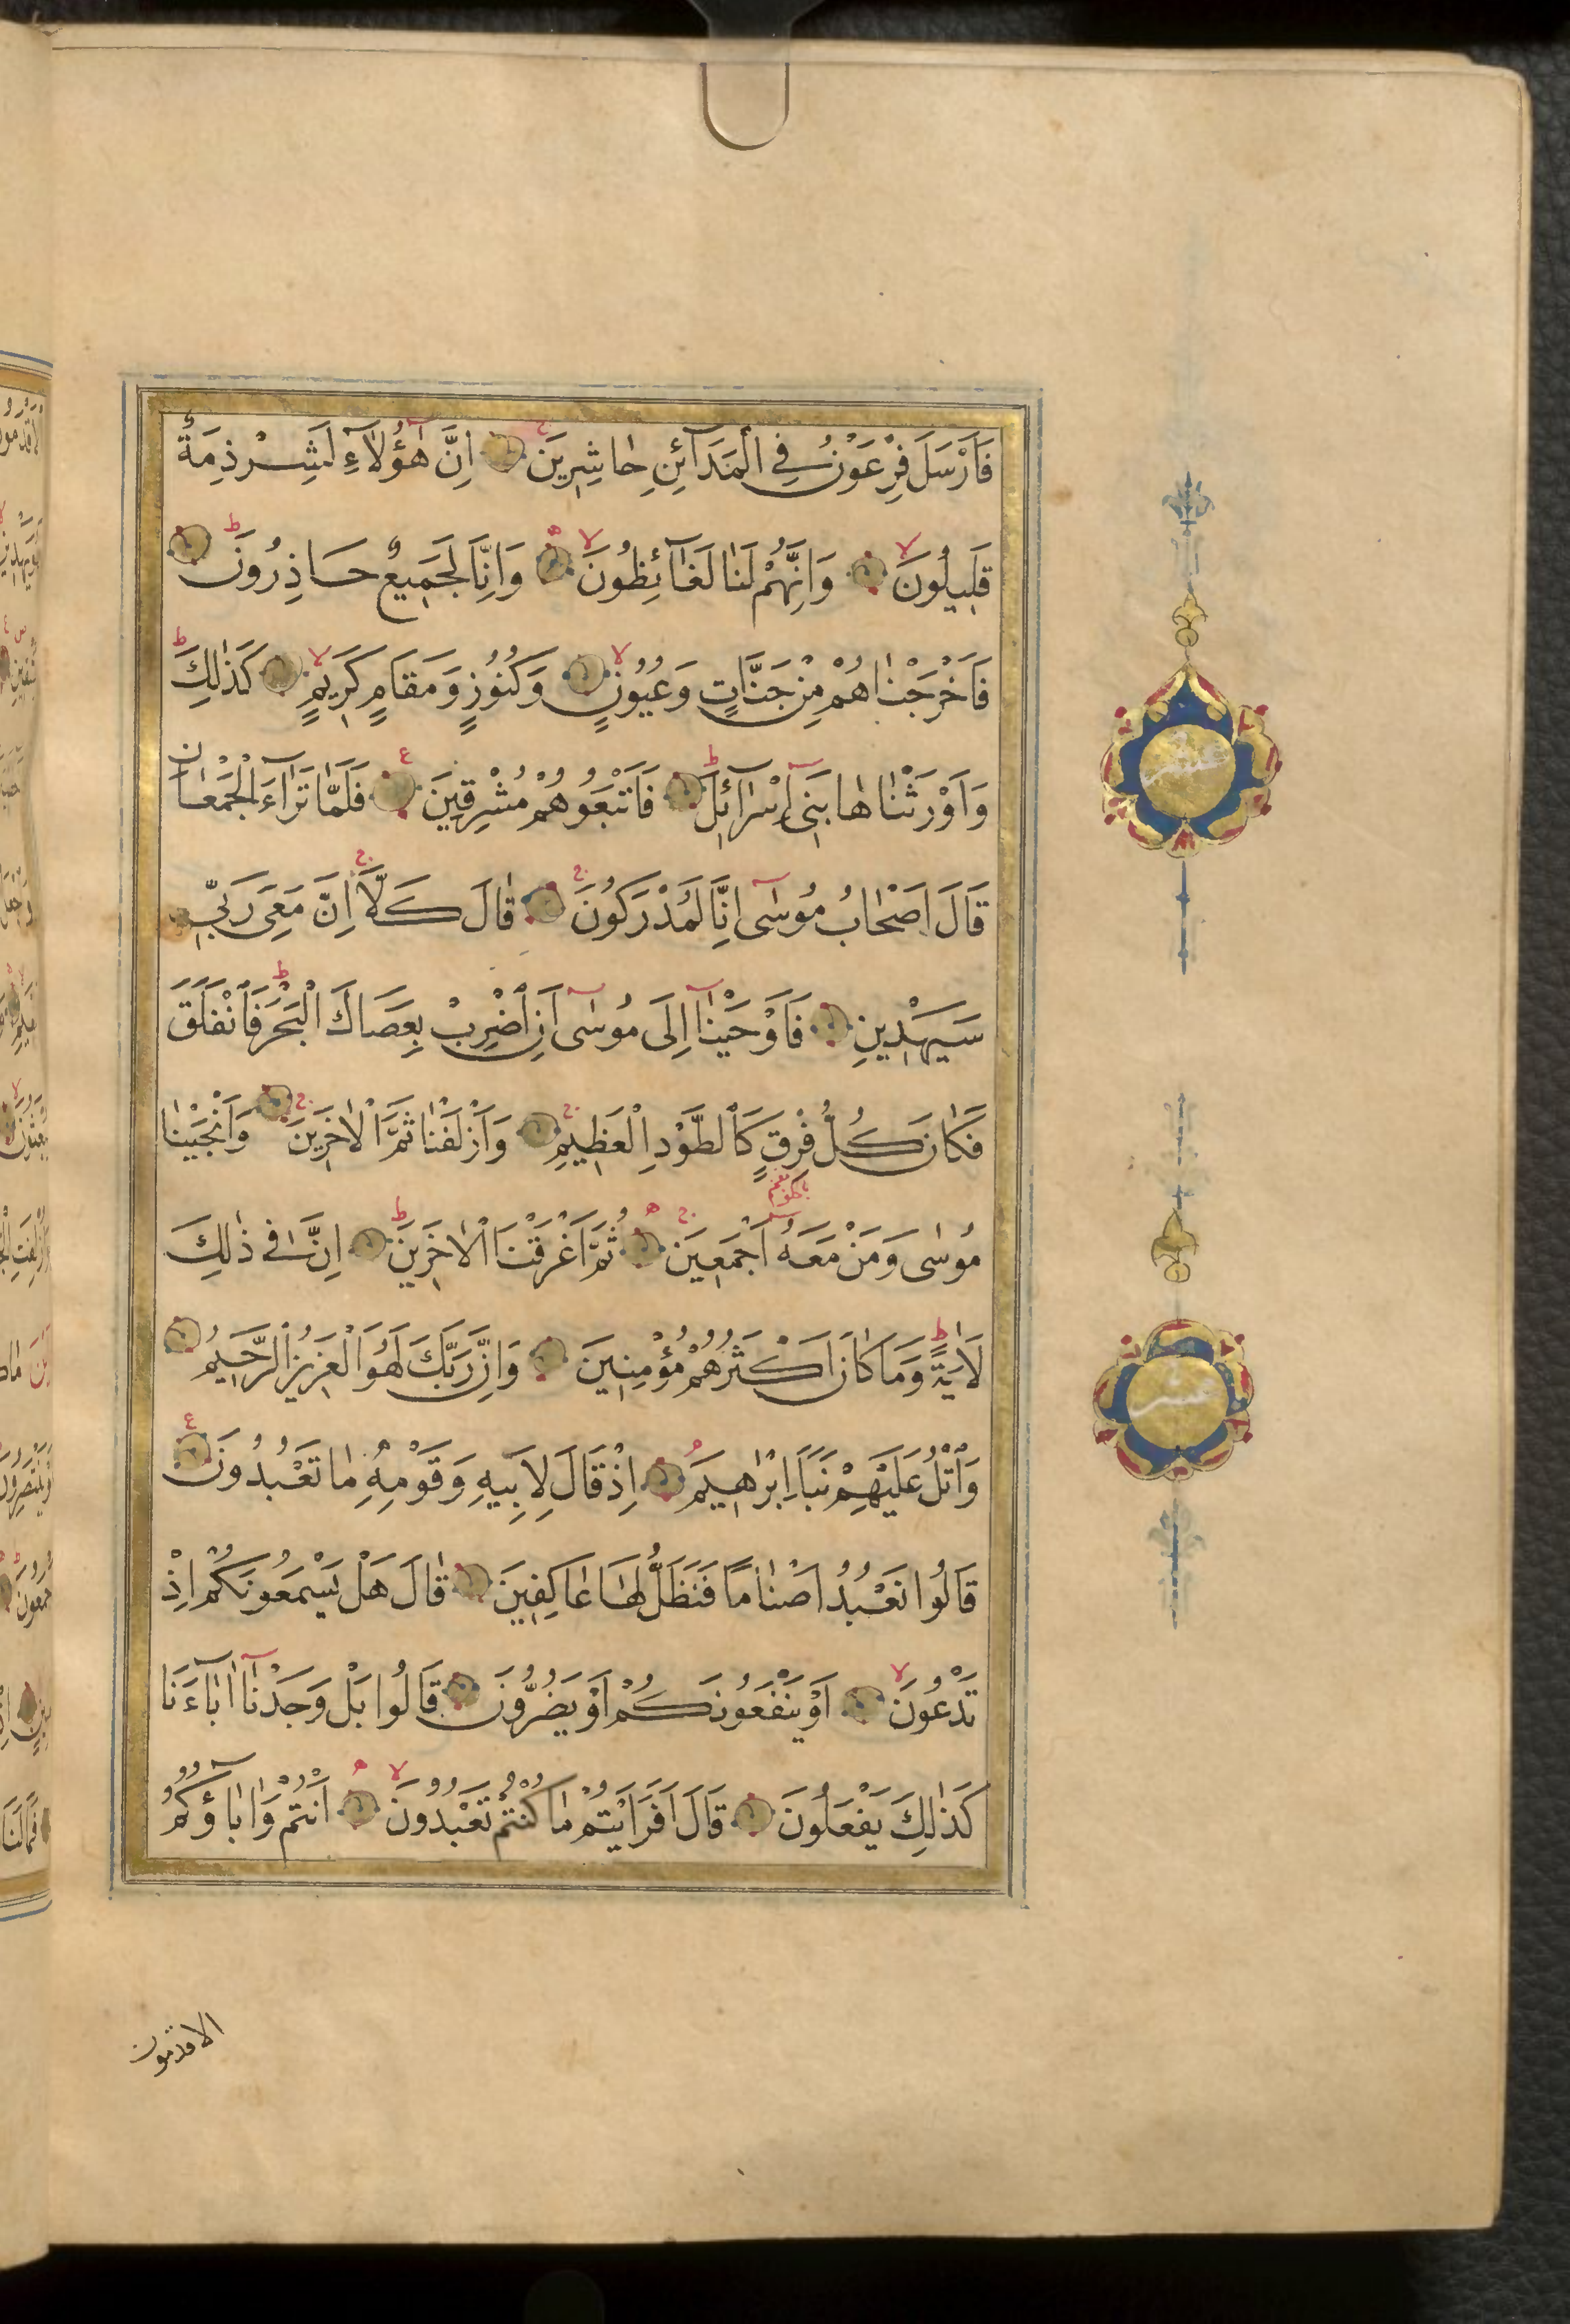 فَاَرْسَلَ فِرْعَوْنُ فِي الْمَدَآئِنِ حٰاشِرِينَ اِنَّ هٰٓؤُلَآءِ لَشِرْذِمَةٌ
قَلِيلُونَ وَاِنَّهُمْ لَنٰا لَغَآئِظُونَ وَاِنَّا لَجَمِيعٌ حَاذِرُونَ
فَاَخْرَجْنٰاهُمْ مِنْ جَنَّاتٍ وَعُيُونٍ وَكُنُوزٍ وَمَقَامٍ كَرِيمٍ كَذٰلِكَ
وَاَوْرَثْنٰاهٰا بَنِىٓ اِسْرٰٓائِلَ فَاَتْبَعُوهُمْ مُشْرِقِينَ فَلَمّٰا تَرٰٓاءَ الْجَمْعٰانِ
قَالَ اَصْحٰابُ مُوسٰىٓ اِنَّا لَمُدْرَكُونَ قٰالَ كَلَّا اِنَّ مَعِىَ رَبِّي
سَيَهْدِينِ فَاَوْحَيْنٰٓا اِلَى مُوسٰىٓ اَنِ اضْرِبْ بِعَصَاكَ الْبَحْرَ فَانْفَلَقَ
فَكٰانَ كُلُّ فِرْقٍ كَالطَّوْدِ الْعَظِيمِ وَاَزْلَفْنٰا ثَمَّ الْاٰخَرِينَ وَاَنْجَيْنٰا
مُوسٰى وَمَنْ مَعَهُ اَجْمَعِينَ ثُمَّ اَغْرَقْنَا الْاٰخَرِينَ اِنَّ فِي ذٰلِكَ
لَاٰيَةً وَمَا كَانَ اَكْثَرُهُمْ مُؤْمِنِينَ وَاِنَّ رَبَّكَ لَهُوَ الْعَزِيزُ الرَّحِيمُ
وَاتْلُ عَلَيْهِمْ نَبَاَ اِبْرٰهِيمَ اِذْ قَالَ لِاَبِيهِ وَقَوْمِهِ مٰا تَعْبُدُونَ
قَالُوا نَعْبُدُ اَصْنٰامًا فَنَظَلُّ لَهَا عٰاكِفِينَ قٰالَ هَلْ يَسْمَعُونَكُمْ اِذْ
تَدْعُونَ اَوْ يَنْفَعُونَكُمْ اَوْ يَضُرُّونَ قَالُوا بَلْ وَجَدْنٰٓا اٰبَاءَنَا
كَذٰلِكَ يَفْعَلُونَ قَالَ اَفَرَاَيْتُمْ مٰا كُنْتُمْ تَعْبُدُونَ اَنْتُمْ وَاٰبَآؤُكُمُ
الاقدمون